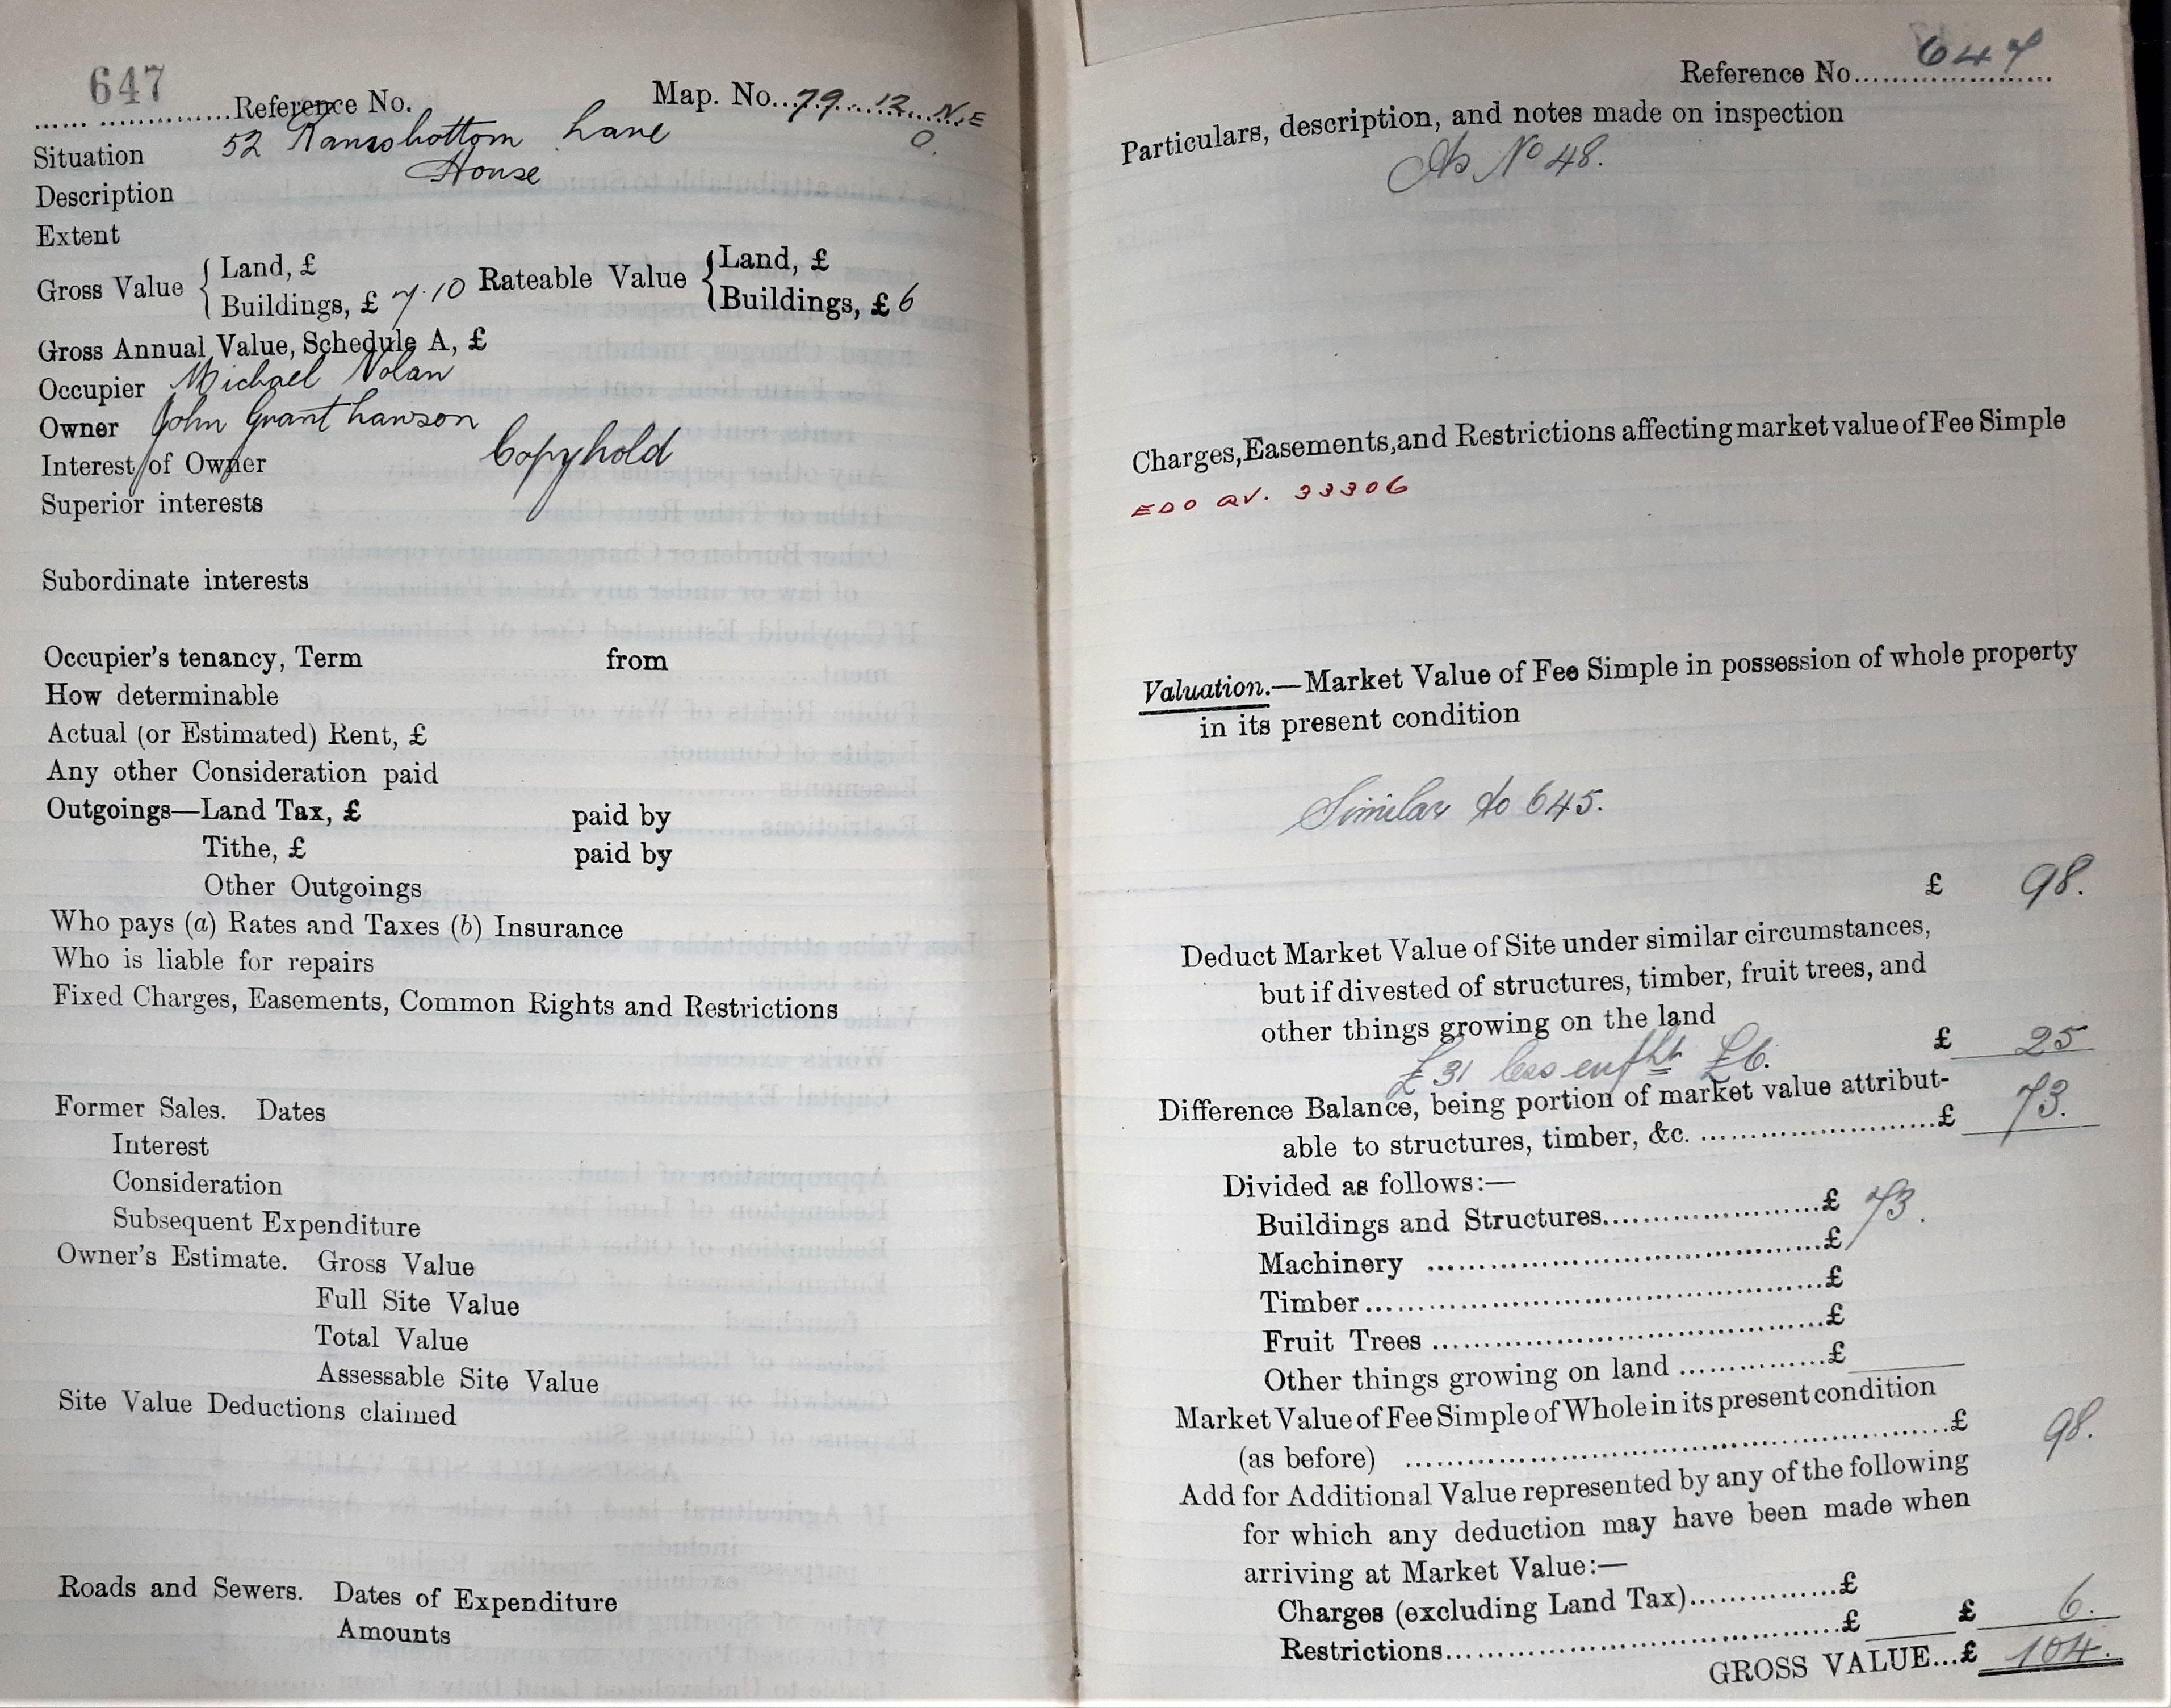 647
...... ..............Reference No. Map. No...79...12...N.E
Situation 52 Ramsbottom Lane O.
Description House
Extent
Gross Value { Land, £ Rateable Value { Land, £
Buildings, £ 7.10 Buildings, £ 6
Gross Annual Value, Schedule A, £
Occupier Michael Nolan
Owner John Grant Lawson
Interest of Owner Copyhold
Superior interests
Subordinate interests
Occupier's tenancy, Term from
How determinable
Actual (or Estimated) Rent, £
Any other Consideration paid
Outgoings—Land Tax, £ paid by
Tithe, £ paid by
Other Outgoings
Who pays (a) Rates and Taxes (b) Insurance
Who is liable for repairs
Fixed Charges, Easements, Common Rights and Restrictions
Former Sales. Dates
Interest
Consideration
Subsequent Expenditure
Owner's Estimate. Gross Value
Full Site Value
Total Value
Assessable Site Value
Site Value Deductions claimed
Roads and Sewers. Dates of Expenditure
Amounts
Reference No. 647
Particulars, description, and notes made on inspection
As No 48.
Charges, Easements, and Restrictions affecting market value of Fee Simple
EDO QV. 33306
Valuation.—Market Value of Fee Simple in possession of whole property
in its present condition
Similar to 645.
£ 98.
Deduct Market Value of Site under similar circumstances,
but if divested of structures, timber, fruit trees, and
other things growing on the land
£31 less enfht £6. £ 25
Difference Balance, being portion of market value attribut-
able to structures, timber, &c. ..............................£ 73.
Divided as follows:—
Buildings and Structures...........................£ 73.
Machinery ..............................................£
Timber.....................................................£
Fruit Trees ..............................................£
Other things growing on land .................£
Market Value of Fee Simple of Whole in its present condition
(as before) .............................................................£ 98.
Add for Additional Value represented by any of the following
for which any deduction may have been made when
arriving at Market Value:—
Charges (excluding Land Tax)................£
Restrictions..............................................£ £ 6.
GROSS VALUE...£ 104.